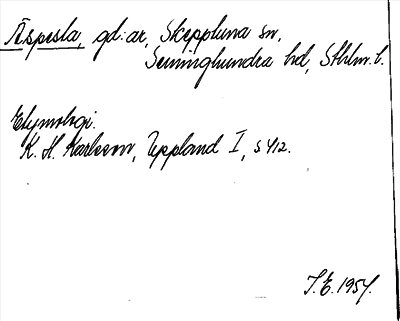 Äspesta, gd:ar, Skepptuna sn,
Seminghundra hd, Sthlm. l.
Etymologi.
K. H. Karlsson, Uppland I, s 412.
I. E. 1954.